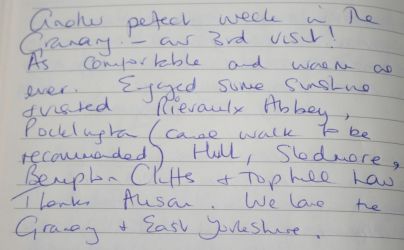 Another perfect week in the
Granary. – our 3rd visit!
As comfortable and warm as
ever. Enjoyed some sunshine
& visited Rievaulx Abbey,
Pocklington (canal walk to be
recommended) Hull, Sledmere,
Bempton Cliffs & Tophill Low
Thanks Alison. We love the
Granary & East Yorkshire.